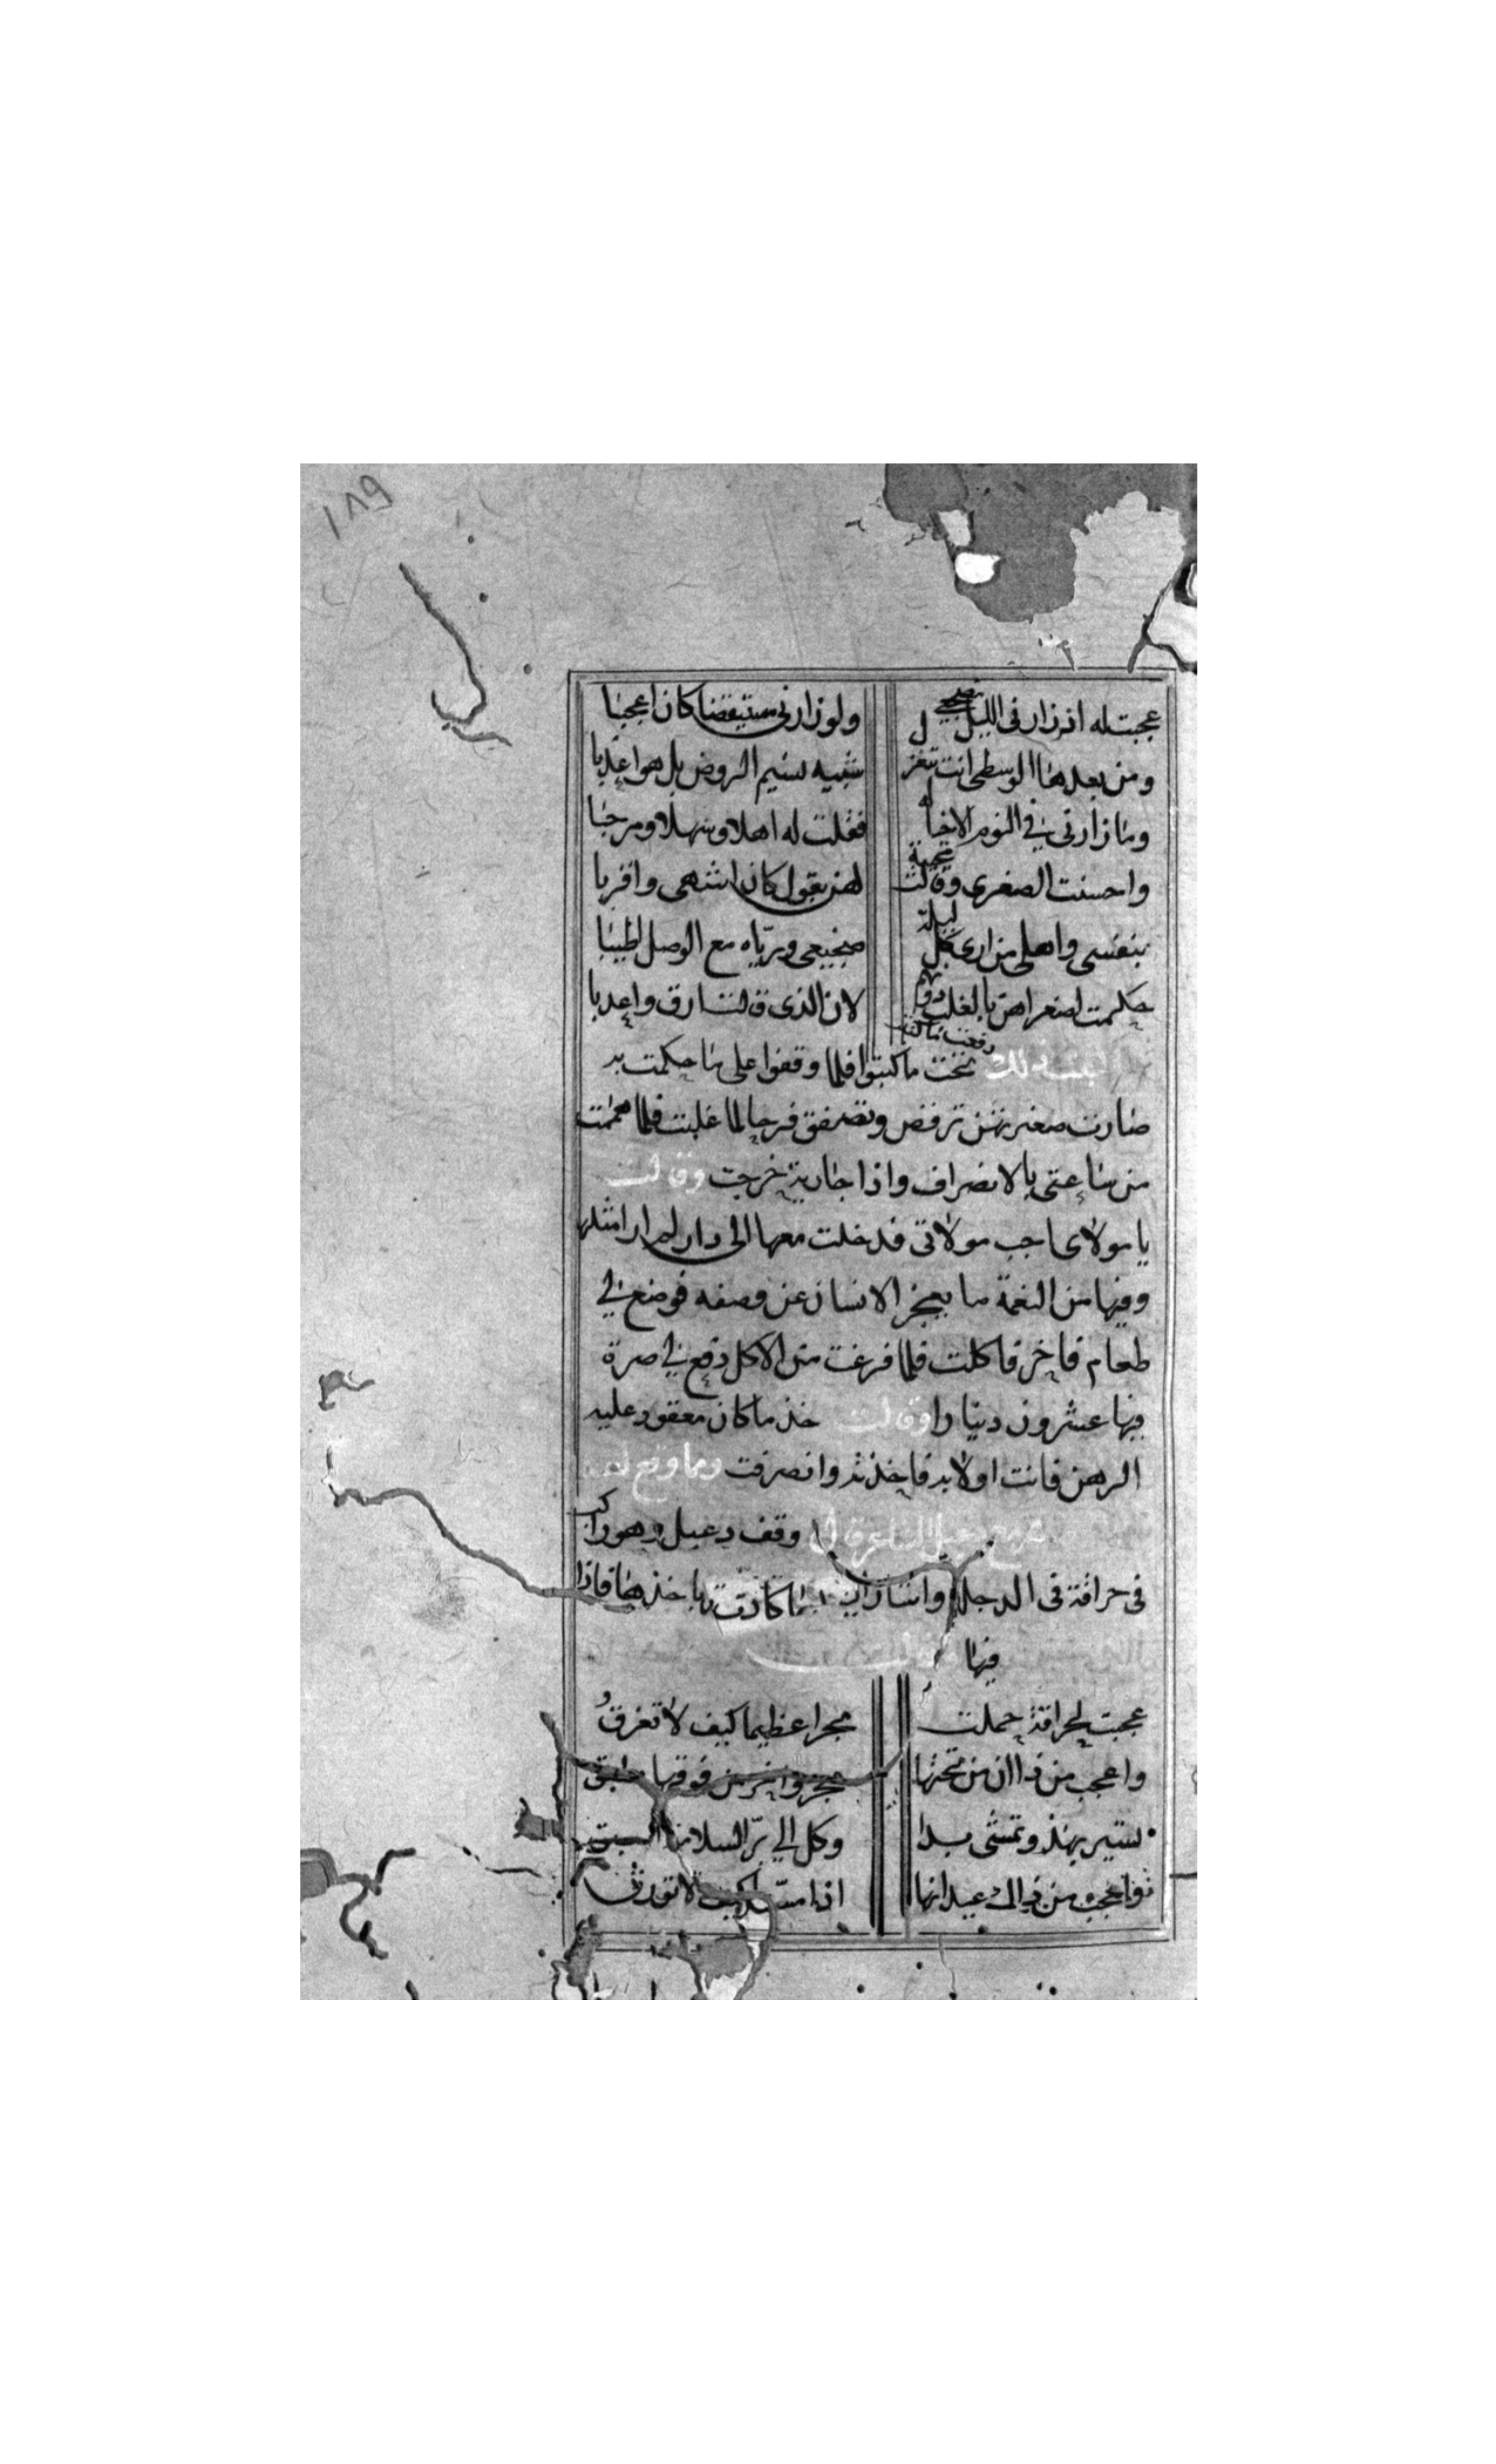 ١٨٩
عجبت له ان زار فى الليل مضجعى ولو زارنى مستيقضا كان اعجبا
ومن بعدها الوسطى انت تغز شبيه نسيم الروض بل هو اعدبا
وما زارنى فى النوم الا خياله فقلت له اهلا وسهلا ومرحبا
واحسنت الصغرى وقالت مجيبة لهن بقول كان اشهى واقربا
بنفسى واهلى من ارى كل ليلة ضجيعى ورياه مع الوصل اطيبا
حكمت لصغراهن بالغلب دونهم لان الذى قالت ارق واعدبا
ذلك تحت ما كتبوا فلما وقفوا على ما حكمت به
صارت صغيرتهن ترقص وتصفق فرحا لما غلبت فلما هممت
من ساعتى بالانصراف واذا جارية خرجت وقالت
يا مولاى اجب مولاتى فدخلت معها الى دار لم ار امثلها
وفيها من النعمة ما يعجز الانسان عن وصفه فوضع لى
طعام فاخر فاكلت فلما فرغت من الاكل دفع لى صرة
فيها عشرون دينارا وقالت خذ ما كان معقود عليه
الرهن فانت اولا به فاخذته وانصرفت وما وقع
وقف دعبل وهو راكب
فى حراقة فى الدجلة
فيها
عجبت لحراقة حملت مجرا عظيما كيف لا تغرق
واعجب من ذا ان من تحتها واخر من فوقها مطبق
تسير بهذ وتمشى بدا وكل الى بر السلامة
واعجب من ذالك عيدانها اذا مسها كيف لا تورق